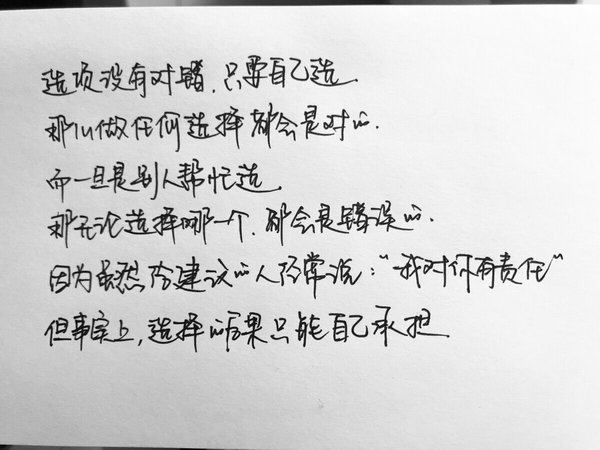 选项没有对错，只要自己选.
那么做任何选择都会是对的.
而一旦是别人帮忙选.
那无论选择哪一个，都会是错误的.
因为虽然给建议的人经常说："我对你有责任"
但事实上，选择的后果只能自己承担